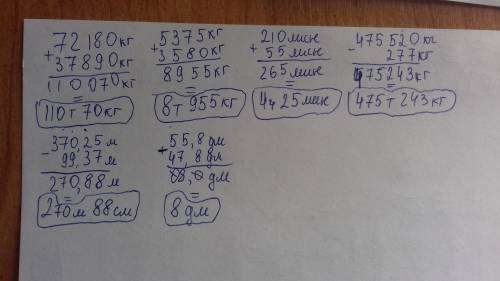 72180кг
+
37890кг
110070кг
=
110т70кг
5375кг
+
3580кг
8955кг
=
8т955кг
210мин
+
55мин
265мин
=
4ч25мин
475520кг
-
277кг
475243кг
=
475т243кг
370,25м
-
99,37м
270,88м
=
270м88см
55,8дм
47,8дм
,0дм
=
8дм